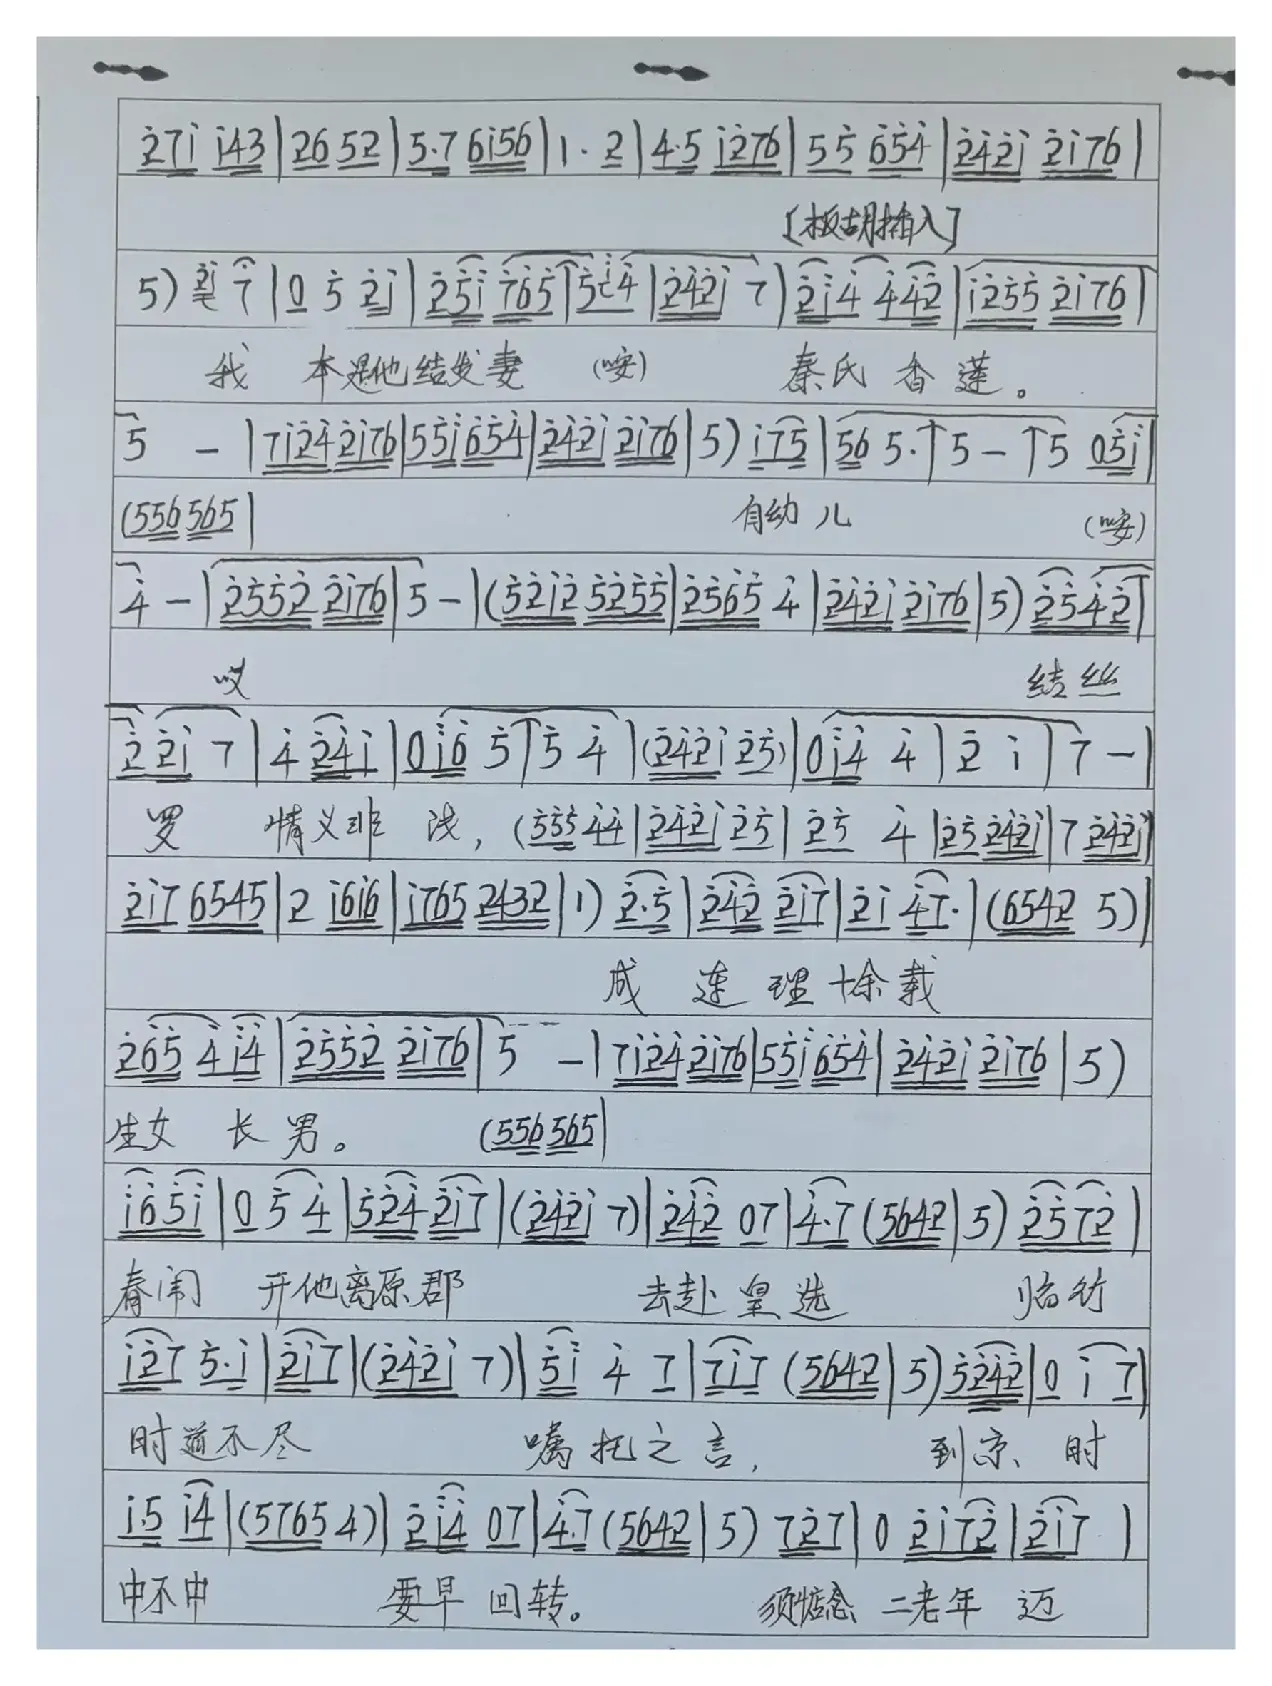 2̇71̇ 1̇43|26 52|5·7 61̇56|1·2|4·5 1̇2̇76|55̇ 6̇5̇4̇|2̇4̇2̇1̇ 2̇1̇76|
[板胡插入]
5) 7|0 5̇ 2̇1̇|2̇5̇1̇ 765|5̇1̇4̇|2̇4̇2̇1̇ 7|2̇1̇4̇ 4̇4̇2̇|1̇2̇55 2̇1̇76|
我 本是他结发妻 (咹) 秦氏香莲。
5 -|71̇2̇4̇ 2̇1̇76|5̇5̇1̇ 6̇5̇4̇|2̇4̇2̇1̇ 2̇1̇76|5) 1̇75|56 5·|5 -|5 05̇1̇|
(556 565| 有幼儿 (咹)
4̇ -|2̇5̇5̇2̇ 2̇1̇76|5 -|(5̇2̇1̇2̇ 5̇2̇5̇5̇|2̇5̇6̇5̇ 4̇|2̇4̇2̇1̇ 2̇1̇76|5) 2̇5̇4̇2̇|
哎 结丝
2̇ 2̇1̇ 7|4̇ 2̇4̇1̇|01̇6 5̇|5̇ 4̇|(2̇4̇2̇1̇ 2̇5̇)|01̇4̇ 4̇|2̇ 1̇|7 -|
罗 情义非浅, (5̇5̇5̇ 4̇4̇|2̇4̇2̇1̇ 2̇5̇|2̇5̇ 4̇|2̇5̇ 2̇4̇2̇1̇|7 2̇4̇2̇1̇
2̇1̇7 6545|2 1̇61̇6|1̇765 2432|1) 2̇·5̇|2̇4̇2̇ 2̇1̇7|2̇1̇ 4̇7·|(6542 5)|
成 连理十余载
2̇6̇5̇ 4̇ 1̇4̇|2̇5̇5̇2̇ 2̇1̇76|5 -|71̇2̇4̇ 2̇1̇76|5̇5̇1̇ 6̇5̇4̇|2̇4̇2̇1̇ 2̇1̇76|5)
生女 长男。 (556 565|
1̇6̇5̇1̇|0 5̇ 4̇|5̇2̇4̇ 2̇1̇7|(2̇4̇2̇1̇ 7)|2̇4̇2̇ 07|4̇·7 (5642|5) 2̇5̇72̇|
春闱 开他离原郡 去赴皇选 临行
1̇2̇7 5̇·1̇|2̇1̇7|(2̇4̇2̇1̇ 7)|5̇1̇ 4̇ 7|71̇7 (5642|5) 5̇2̇4̇2̇|0 1̇ 7|
时道不尽 嘱托之言, 到京、时
1̇·5 1̇4̇|(5765 4)|2̇1̇4̇ 07|4̇·7 (5642|5) 72̇7|0 2̇1̇72̇|2̇1̇7|
中不中 要早回转。 须惦念 二老年 迈